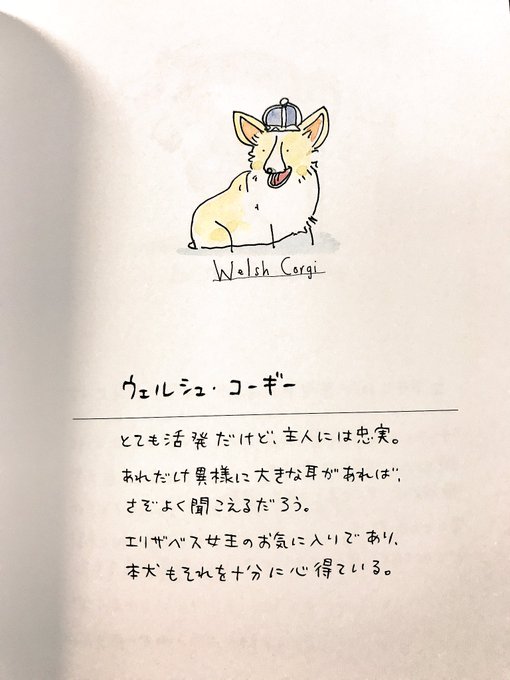 Welsh Corgi
ウェルシュ・コーギー
とても活発だけど、主人には忠実。
あれだけ異様に大きな耳があれば、
さぞよく聞こえるだろう。
エリザベス女王のお気に入りであり、
本犬もそれを十分に心得ている。